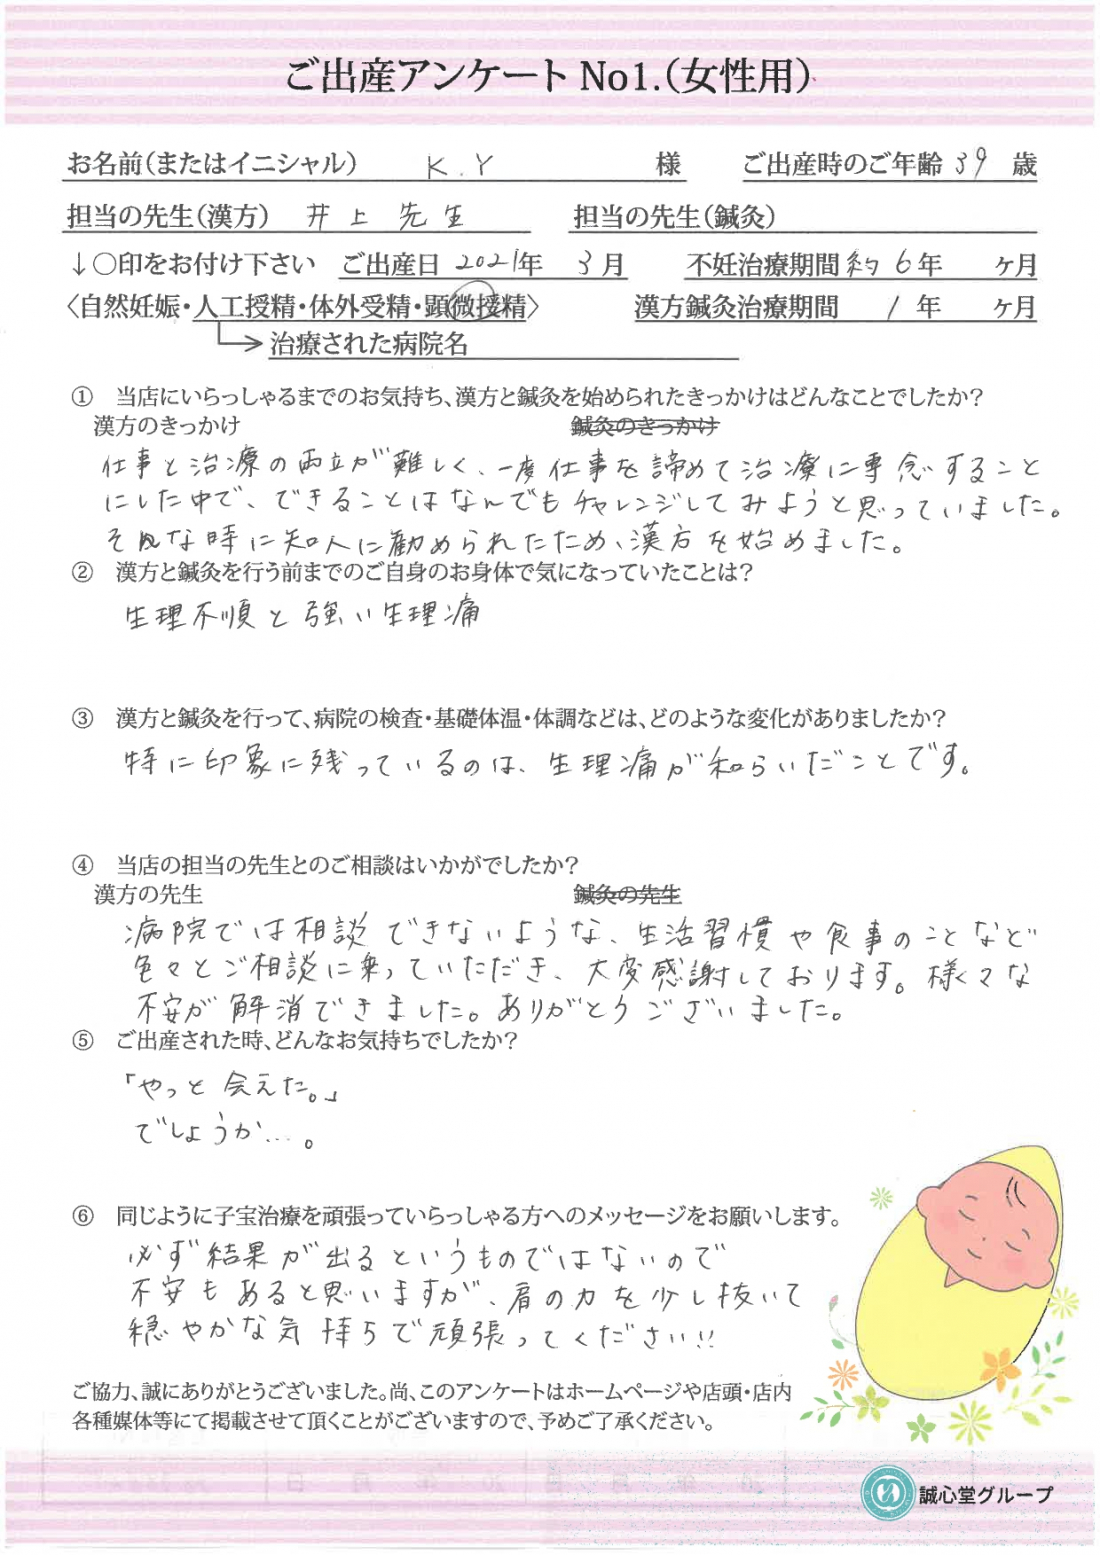 ご出産アンケート No1.(女性用)
お名前(またはイニシャル) K.Y 様 ご出産時のご年齢 39 歳
担当の先生(漢方) 井上先生 担当の先生(鍼灸)
↓〇印をお付け下さい ご出産日 2021年 3月 不妊治療期間 約6年 ヶ月
〈自然妊娠・人工授精・体外受精・顕微授精〉 漢方鍼灸治療期間 1年 ヶ月
治療された病院名
① 当店にいらっしゃるまでのお気持ち、漢方と鍼灸を始められたきっかけはどんなことでしたか?
漢方のきっかけ 鍼灸のきっかけ
仕事と治療の両立が難しく、一度仕事を諦めて治療に専念すること
にした中で、できることはなんでもチャレンジしてみようと思っていました。
そんな時に知人に勧められたため、漢方を始めました。
② 漢方と鍼灸を行う前までのご自身のお身体で気になっていたことは?
生理不順と強い生理痛
③ 漢方と鍼灸を行って、病院の検査・基礎体温・体調などは、どのような変化がありましたか?
特に印象に残っているのは、生理痛が和らいだことです。
④ 当店の担当の先生とのご相談はいかがでしたか?
漢方の先生 鍼灸の先生
病院では相談できないような、生活習慣や食事のことなど
色々とご相談に乗っていただき、大変感謝しております。様々な
不安が解消できました。ありがとうございました。
⑤ ご出産された時、どんなお気持ちでしたか?
「やっと会えた。」
でしょうか…。
⑥ 同じように子宝治療を頑張っていらっしゃる方へのメッセージをお願いします。
必ず結果が出るというものではないので
不安もあると思いますが、肩の力を少し抜いて
穏やかな気持ちで頑張ってください!!
ご協力、誠にありがとうございました。尚、このアンケートはホームページや店頭・店内
各種媒体等にて掲載させて頂くことがございますので、予めご了承ください。
誠心堂グループ